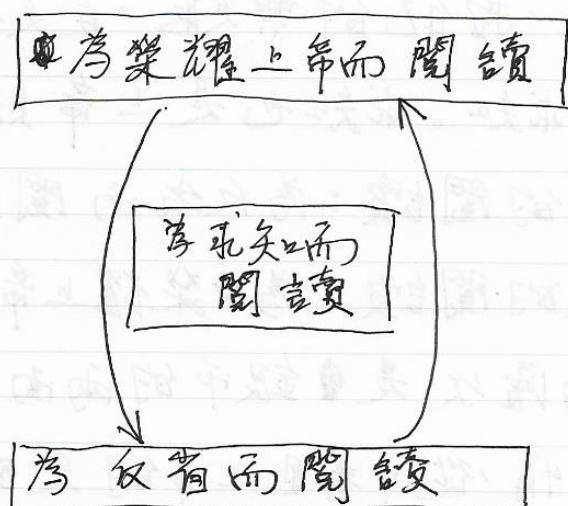 為榮耀上帝而閱讀
為求知而
閱讀
為反省而閱讀